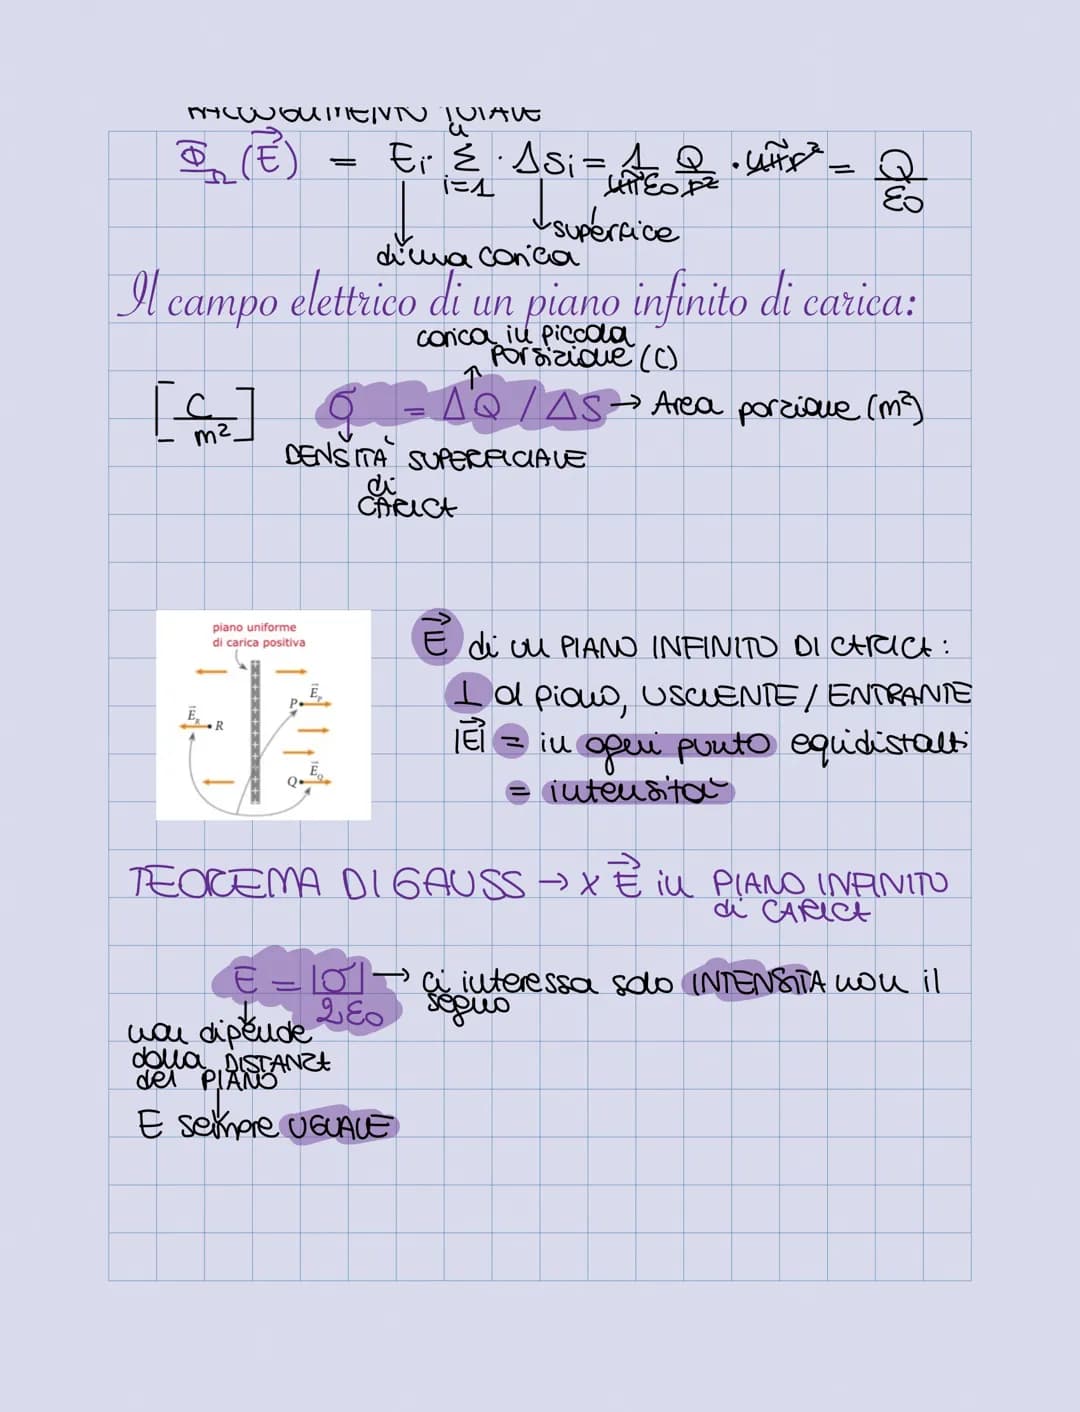 RACCOGLIMENTO TOTALE
Φ_Ω (E⃗) = Ei n Σ i=1 · ΔSi = 1/4πε0 Q/r² · 4πr² = Q/ε0
superfice
di una carica
Il campo elettrico di un piano infinito di carica:
carica in piccola
porsizione (C)
[C/m²] σ = ΔQ / ΔS → Area porzione (m²)
DENSITÀ SUPERFICIALE
di
CARICA
piano uniforme
di carica positiva
E⃗P
P
E⃗R
R
E⃗Q
Q
E⃗ di un PIANO INFINITO DI CARICA:
⊥ al piano, USCIENTE / ENTRANTE
|E⃗| = in ogni punto equidistalti
= intensità
TEOREMA DI GAUSS → x E⃗ in PIANO INFINITO
di CARICA
E = |σ|/2ε0 → ci interessa solo INTENSITÀ non il
segno
non dipende
dalla DISTANZA
del PIANO
E sempre UGUALE